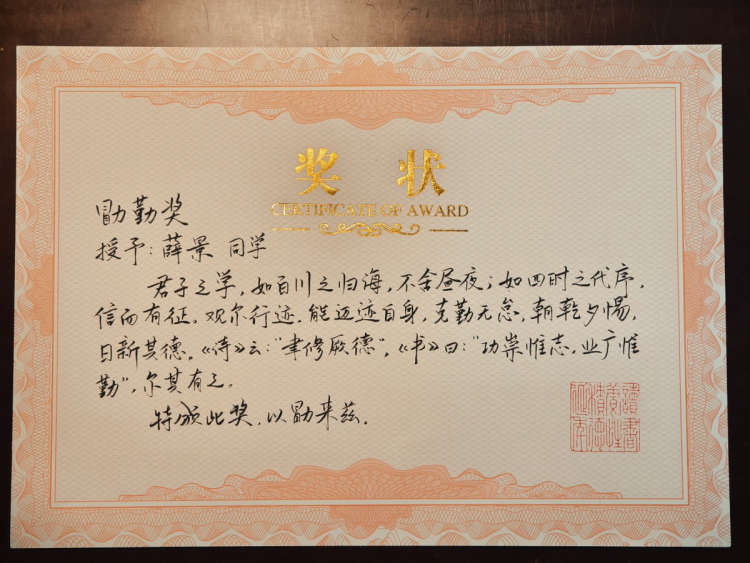 奖 状
CERTIFICATE OF AWARD
勖勤奖
授予：薛景 同学
君子之学，如百川之归海，不舍昼夜；如四时之代序，
信而有征。观尔行迹，能迈迹自身，克勤无怠，朝乾夕惕，
日新其德。《诗》云：“聿修厥德”，《书》曰：“功崇惟志，业广惟
勤”，尔其有之。
特颁此奖，以勖来兹。